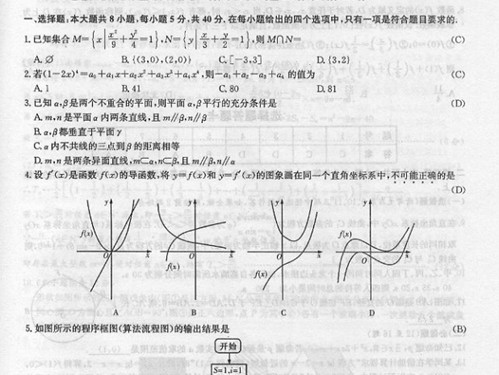 一、选择题:本大题共8小题,每小题5分,共40分.在每小题给出的四个选项中,只有一项是符合题目要求的.
1.已知集合M={x|x²/9+y²/4=1},N={y|x/3+y/2=1},则M∩N= (C)
A.∅ B.{(3,0),(2,0)} C.[-3,3] D.{3,2}
2.若(1-2x)⁴=a₀+a₁x+a₂x²+a₃x³+a₄x⁴,则-a₁+a₂-a₃+a₄的值为 (C)
A.1 B.41 C.80 D.81
3.已知α,β是两个不重合的平面,则平面α,β平行的充分条件是 (D)
A.m,n是平面α内两条直线,且m∥β,n∥β
B.α,β都垂直于平面γ
C.α内不共线的三点到β的距离相等
D.m,n是两条异面直线,m⊂α,n⊂β,且m∥β,n∥α
4.设f′(x)是函数f(x)的导函数,将y=f(x)和y=f′(x)的图象画在同一个直角坐标系中,不可能正确的是
(D)
y y y y
f(x) f(x) f(x) f(x)
O x O x O x O x
A B C D
5.如图所示的程序框图(算法流程图)的输出结果是 (B)
开始
S=1,i=1